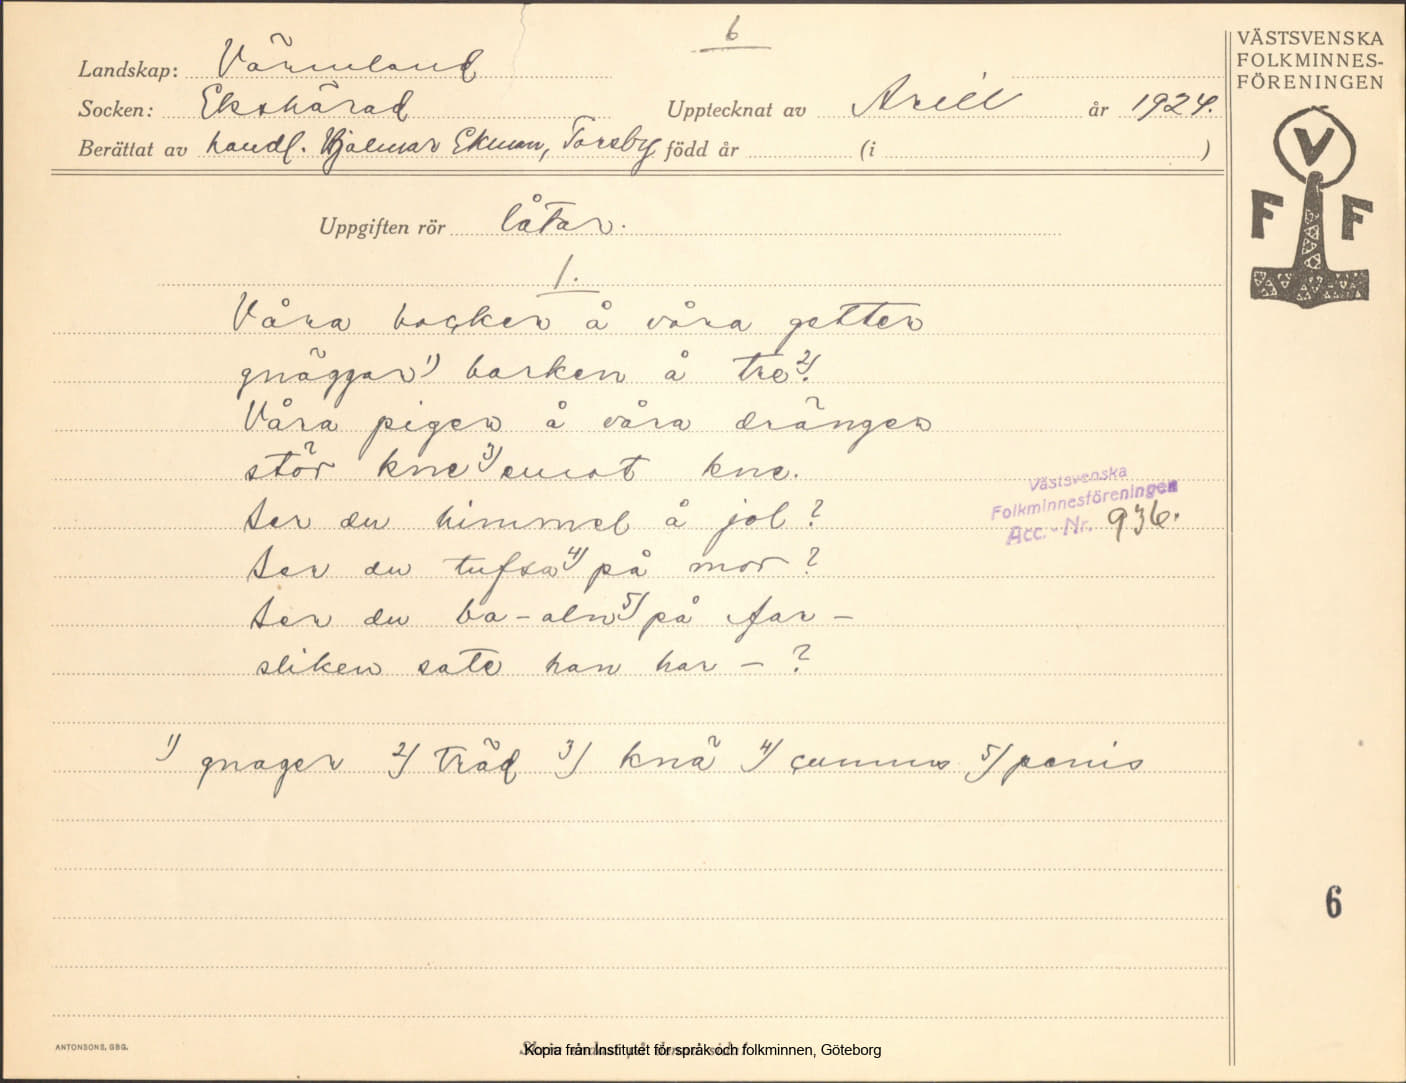 6
Landskap: Värmland
Socken: Ekshärad Upptecknat av Arill år 1924.
Berättat av handl. Hjalmar Ekman, Torsby född år (i )
Uppgiften rör låtar.
1.
Våra bocker å våra getter
gnäggar 1) barken å tre 2).
Våra piger å våra dränger
stör kne 3) emot kne.
Ser du himmel å jol?
Ser du tufsa 4) på mor?
Ser du ba-aln 5) på far –
sliken sate han har – ?
1) gnager 2) träd 3) knä 4) cunnus 5) penis
VÄSTSVENSKA
FOLKMINNES-
FÖRENINGEN
V
F F
Västsvenska
Folkminnesföreningen
Acc.-Nr. 936.
6
ANTONSONS, GBG.
Kopia från Institutet för språk och folkminnen, Göteborg